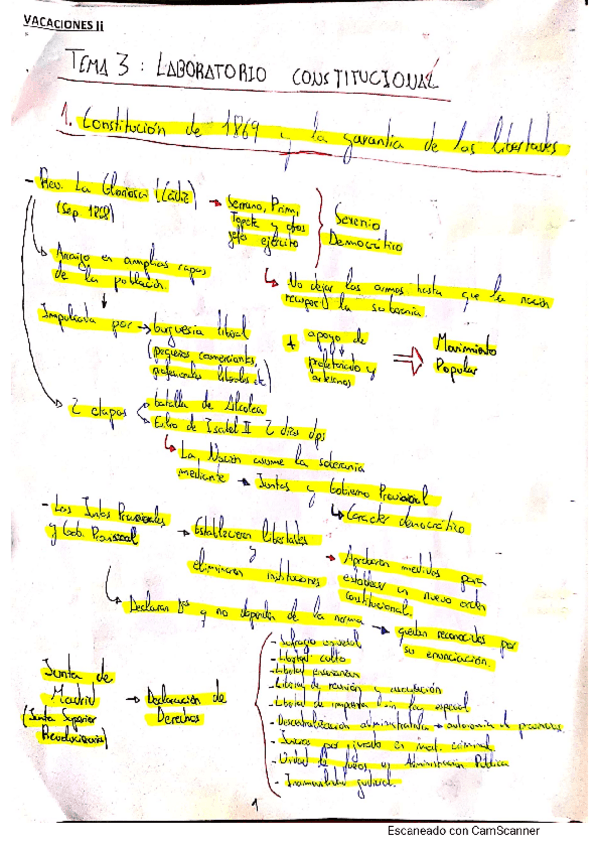 VACACIONES Ii
TEMA 3: LABORATORIO CONSTITUCIONAL
1. Constitución de 1869 y la garantía de las libertades
- Rev. La Gloriosa (Cádiz) → Serrano, Prim, Topete y otros jefes ejército
(Sep. 1868)
Sexenio Democrático
No dejar las armas hasta que la nación recupere la soberanía
Arraigo en amplias capas de la población
Impulsada por → burguesía liberal
(pequeños comerciantes, profesionales liberales etc)
+ apoyo de proletariado y artesanos
⇒ Movimiento Popular
2 etapas
batalla de Alcolea
Exilio de Isabel II 2 días dps
La Nación asume la soberanía
mediante → Juntas y Gobierno Provisional
Carácter democrático
- Las Juntas Provisionales y Gob. Provisional
→ Establecieron libertades
y
eliminaron instituciones
→ Aprobaron medidas para establecer un nuevo orden constitucional.
Declaran Dºs y no dependen de la norma → quedan reconocidos por su enunciación.
Junta de Madrid
(Junta Superior Revolucionaria)
→ Declaración de Derechos
- Sufragio universal
- Libertad culto
- Libertad enseñanza
- Libertad de reunión y asociación
- Libertad de imprenta sin ley especial
- Descentralización administrativa → autonomía
- Juicios por jurado en mat. criminal.
- Unidad de fueros en Administración Pública
- Inamovilidad judicial.
1
Escaneado con CamScanner